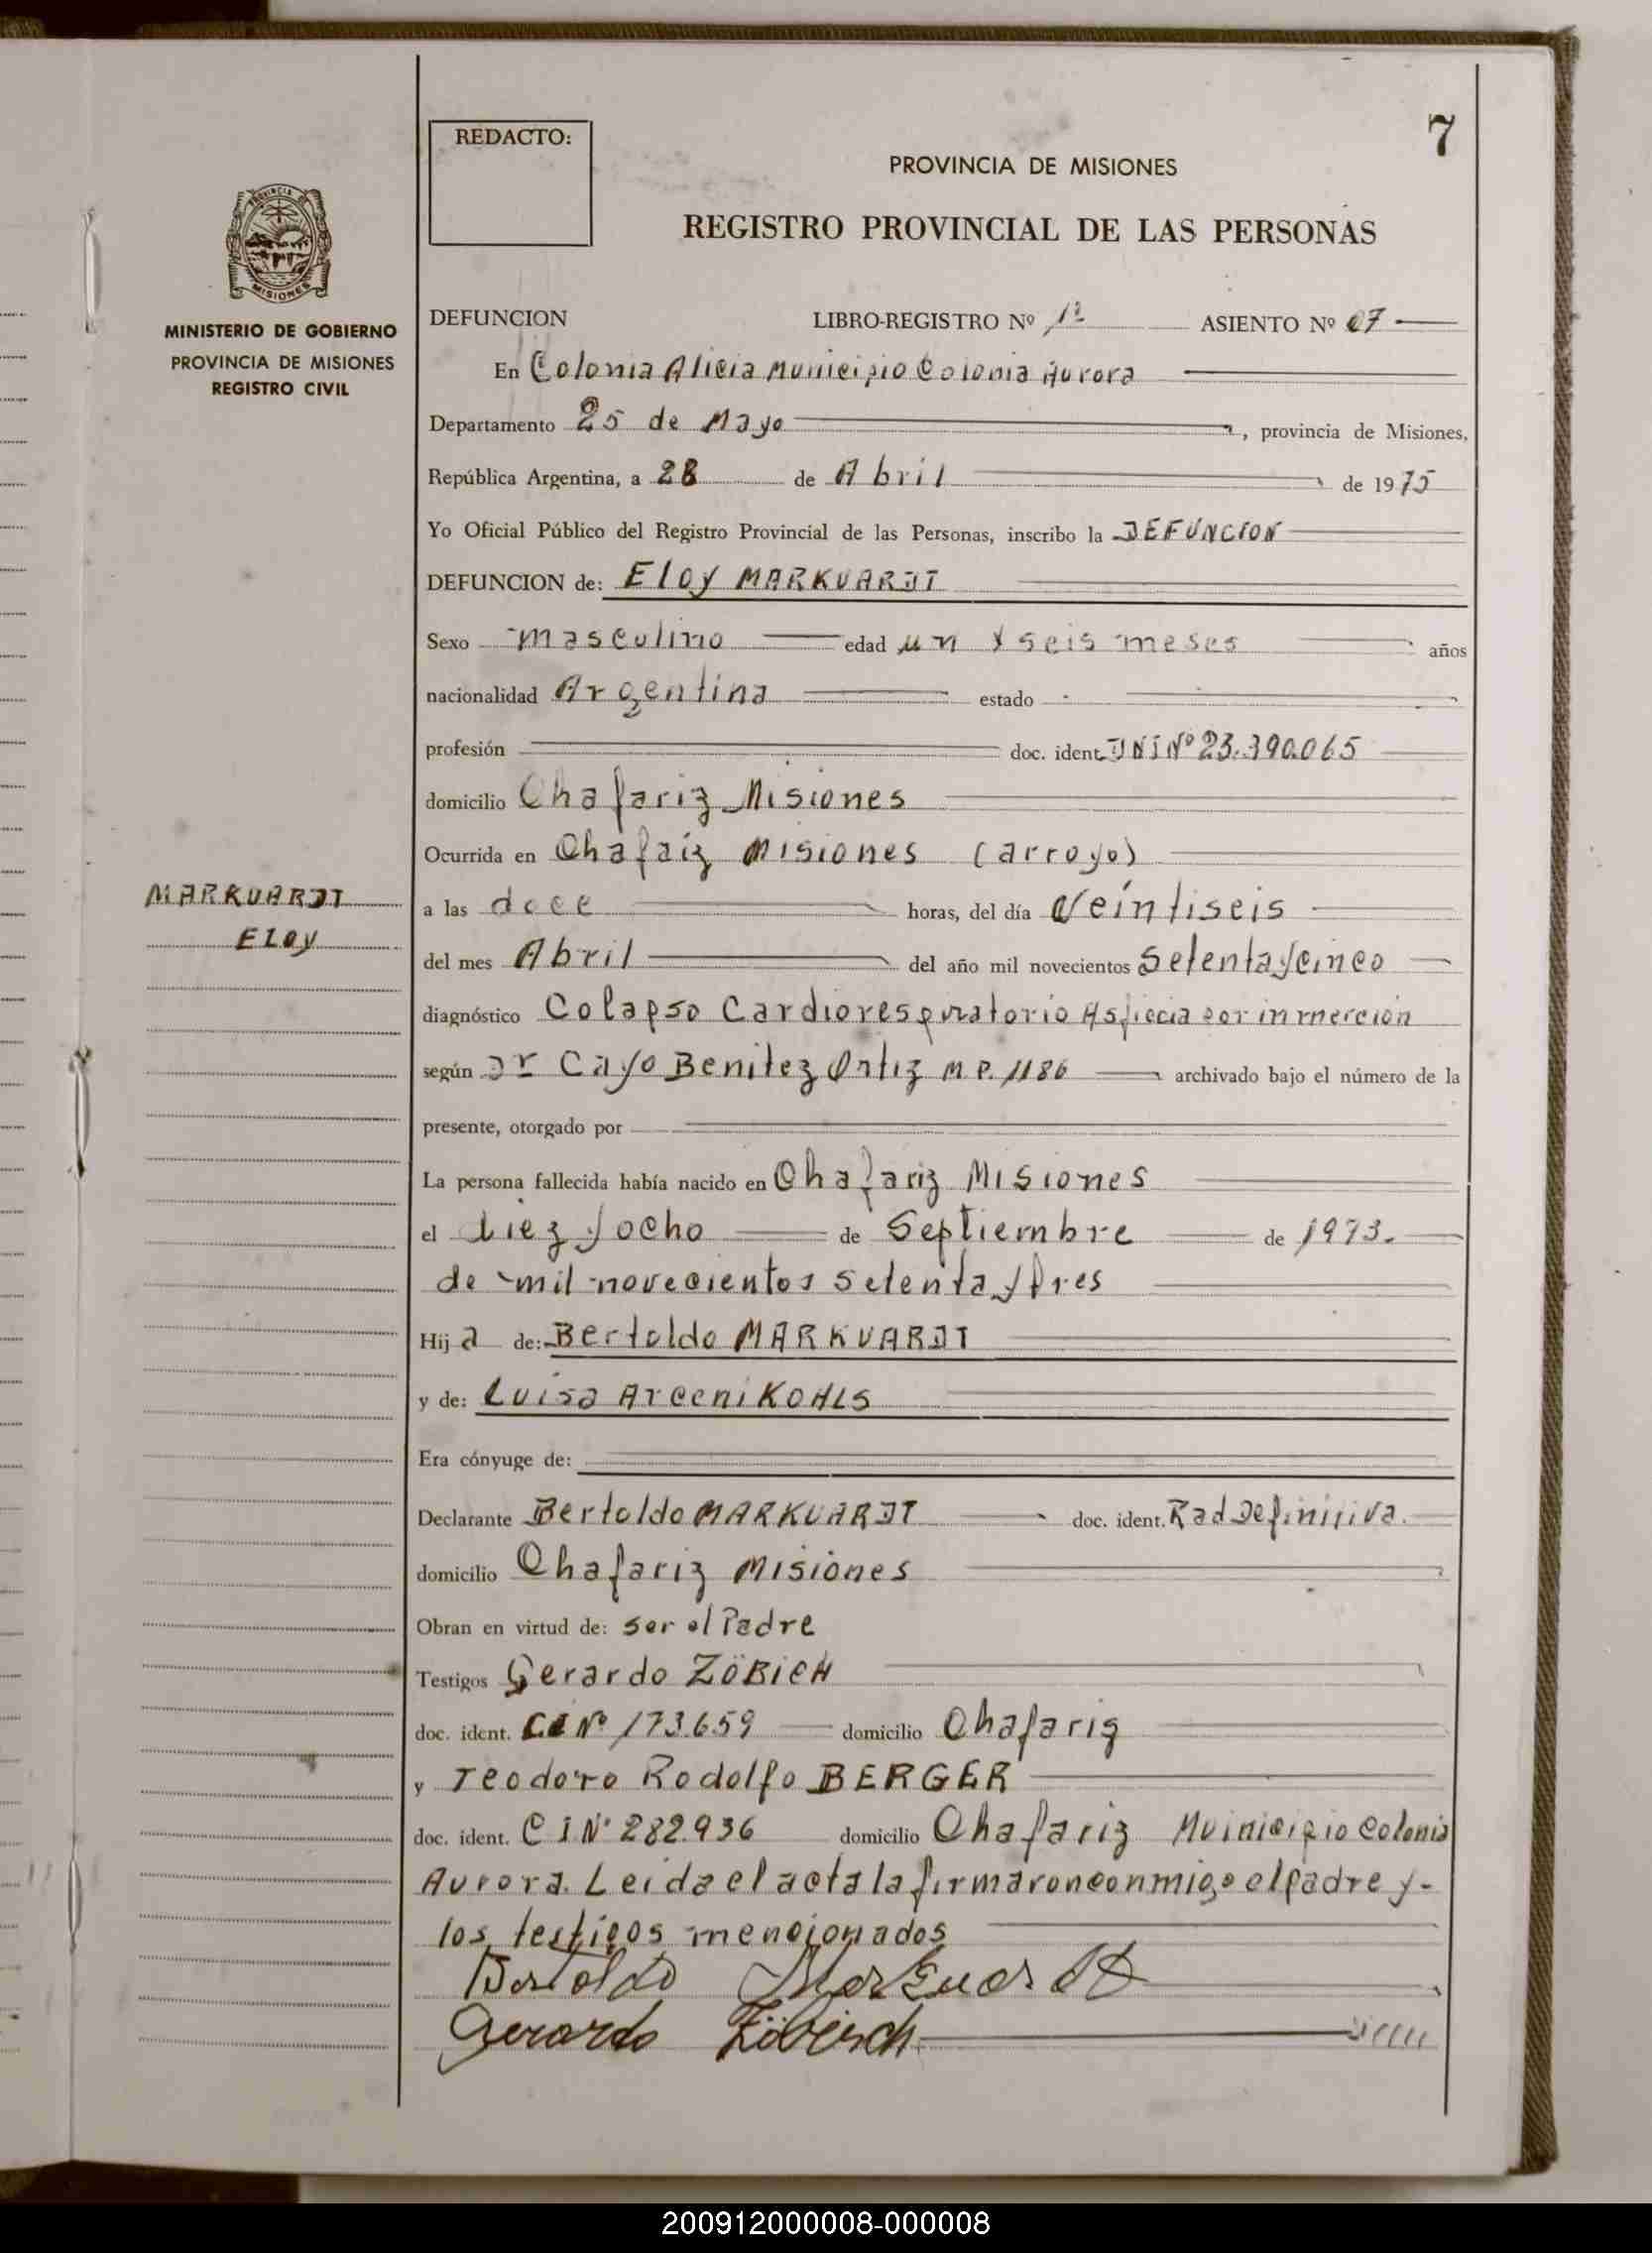 7
REDACTO:
PROVINCIA DE MISIONES
REGISTRO PROVINCIAL DE LAS PERSONAS
PROVINCIA DE
MISIONES
MINISTERIO DE GOBIERNO
PROVINCIA DE MISIONES
REGISTRO CIVIL
DEFUNCION LIBRO-REGISTRO Nº 1º ASIENTO Nº 07
En Colonia Alicia Municipio Colonia Aurora
Departamento 25 de Mayo, provincia de Misiones,
República Argentina, a 28 de Abril de 1975
Yo Oficial Público del Registro Provincial de las Personas, inscribo la DEFUNCION
DEFUNCION de: Eloy MARKVARDT
Sexo masculino edad un y seis meses años
nacionalidad Argentina estado
profesión doc. ident. DNI Nº 23.390.065
domicilio Chafariz Misiones
Ocurrida en Chafaiz Misiones (arroyo)
MARKVARDT
ELOY
a las doce horas, del día Veintiseis
del mes Abril del año mil novecientos Setenta y cinco
diagnóstico Colapso Cardiorespiratorio Asficcia por inmercion
según Dr Cayo Benitez Ortiz M.P. 1186 archivado bajo el número de la
presente, otorgado por
La persona fallecida había nacido en Chafariz Misiones
el Diez y ocho de Septiembre de 1973.
de mil novecientos setenta y tres
Hij a de: Bertoldo MARKVARDT
y de: Luisa Arceni KOHLS
Era cónyuge de:
Declarante Bertoldo MARKVARDT doc. ident. Rad Definitiva.
domicilio Chafariz Misiones
Obran en virtud de: ser el Padre
Testigos Gerardo ZÖBICH
doc. ident. C.I Nº 173.659 domicilio Chafariz
y Teodoro Rodolfo BERGER
doc. ident. C I Nº 282.936 domicilio Chafariz Muinicipio Colonia
Aurora. Leida el acta la firmaron conmigo el padre y-
los testigos mencionados
Bertoldo Markvardt
Gerardo Zöbisch
200912000008-000008